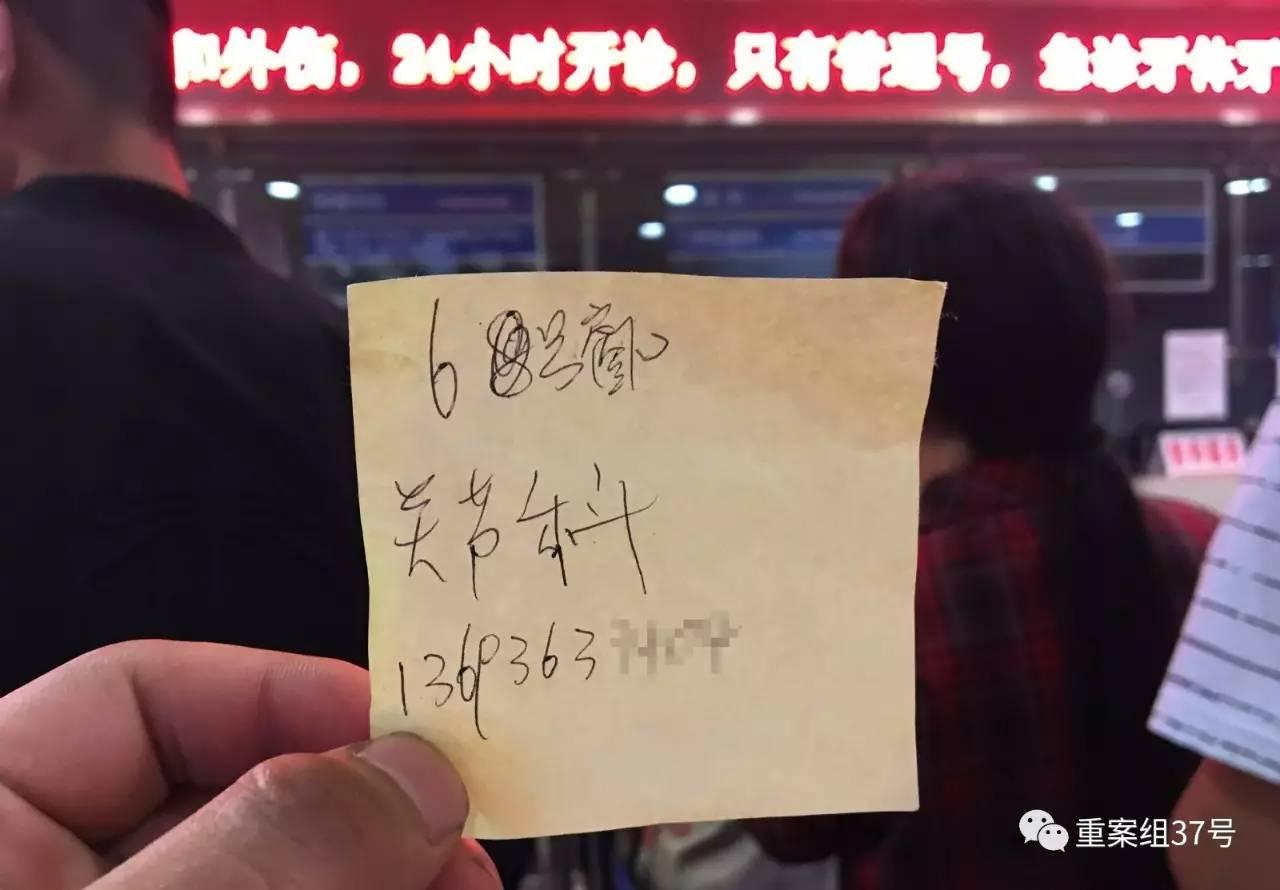 和外伤，24小时开诊，只有普通号，急诊牙体牙
6 号窗口
关节科
1369363
重案组37号